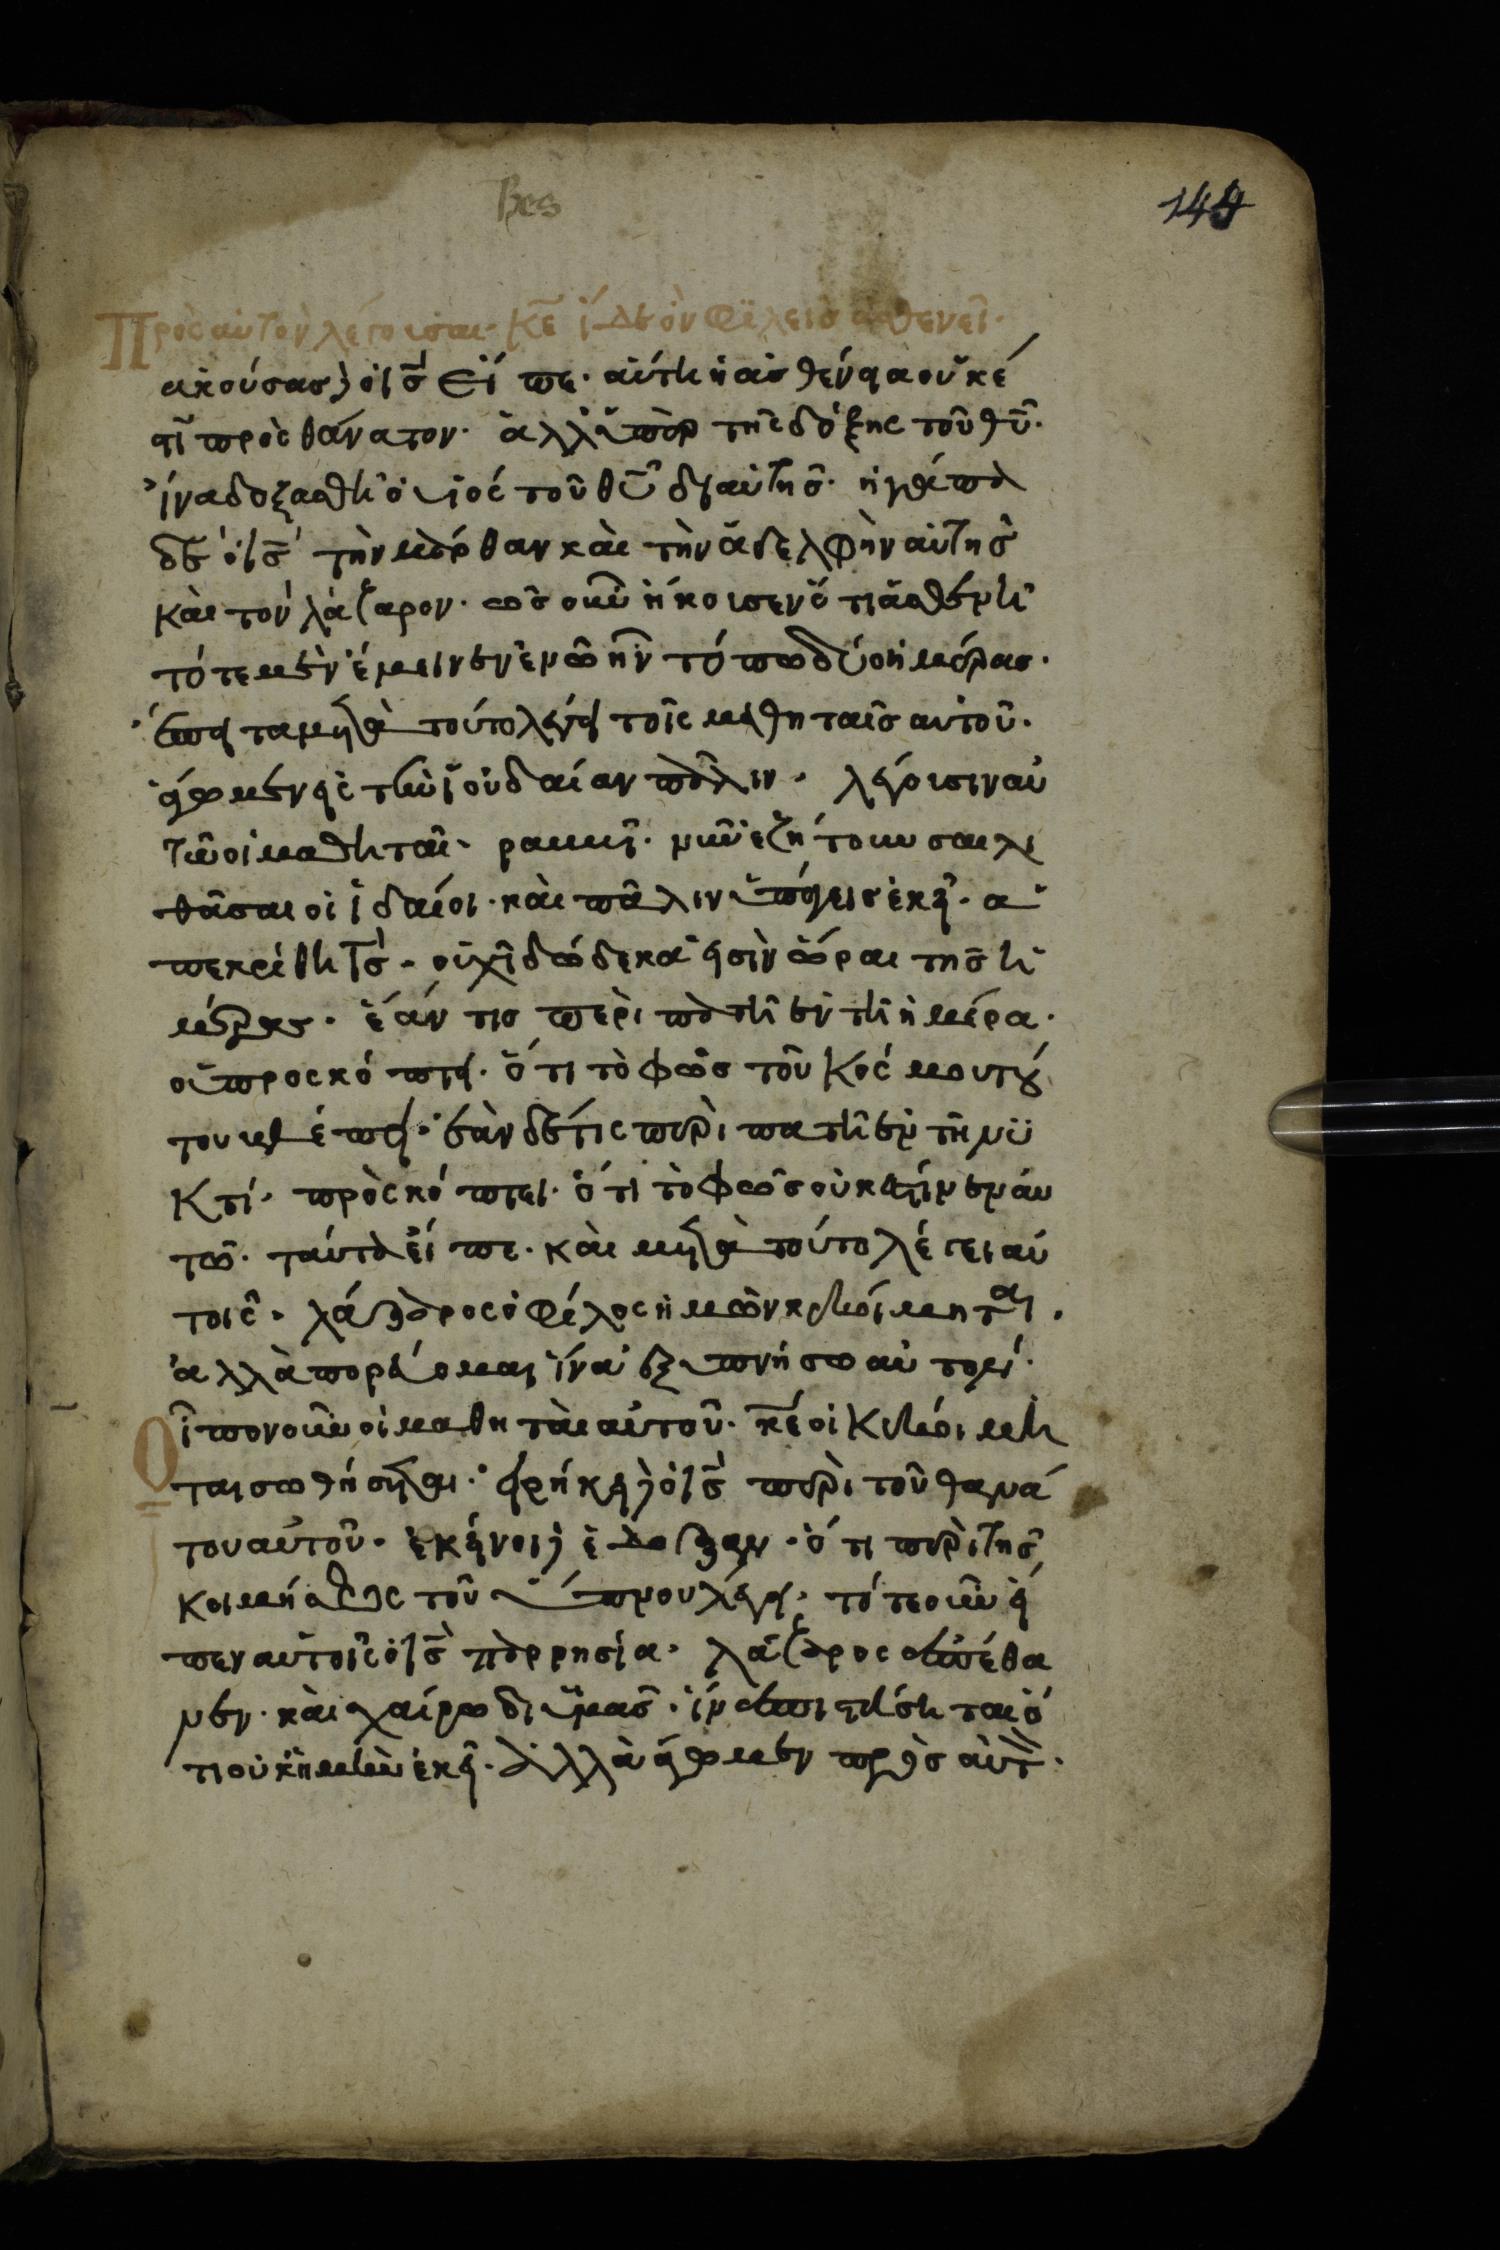 Βες
149
Πρὸς αὐτὸν λέγουσαι· κ̅ε̅ ἴδε ὃν φϊλεῖς ἀσθενεῖ·
ἀκούσας δὲ ὁ ι̅ς̅ εἶπε· αὕτη ἡ ἀσθένεια οὔκ ἐ
στι πρὸς θάνατον· ἀλλ' ὑπὲρ τῆς δόξης τοῦ θ̅υ̅·
ἵνα δοξασθῆ ὁ υἱὸς τοῦ θ̅υ̅ δι αὐτῆς· ἠγάπα
δὲ ὁ ι̅ς̅ τὴν μάρθαν καὶ τὴν ἀδελφὴν αὐτῆς
καὶ τὸν λάζαρον· ὡς οὖν ἤκουσεν ὅτι ἀσθενῆ
τότε μὲν ἔμεινεν ἐν ὧ ἦν τόπω δύο ἡμέρας·
ἔπειτα μετὰ τοῦτο λέγει τοῖς μαθηταῖς αὐτοῦ·
ἄγωμεν εἰς τὴν ἰουδαίαν πάλιν· λέγουσιν αὐ
τῶ οἱ μαθηταὶ· ραββὶ· νῦν ἐζήτουν σαι λι
θάσαι οἱ ἰδαίοι· καὶ πάλιν ὑπάγεις ἐκεῖ· ἀ
πεκρίθη ι̅ς̅· οὐχὶ δώδεκα εἰσὶν ὧραι τῆς ἡ
μέρας· ἐάν τις περιπατῆ ἐν τῆ ἡμέρα·
οὐ προσκόπτει· ὅτι τὸ φῶς τοῦ κόσμου τού
του βλέπει· ἐὰν δέ τις περιπατῆ ἐν τῆ νυ
κτί· πρὸσκόπτει· ὅτι τὸ φῶς οὐκ ἔστιν ἐν αὐ
τῶ· ταῦτα εἶπε· καὶ μετὰ τοῦτο λέγει αὐ
τοῖς· λάζαρος ὁ φίλος ἡμῶν κεκοίμηται·
ἀλλὰ πορεύομαι ἵνα ἐξυπνήσω αὐτον·
Εἶπον οὖν οἱ μαθηταὶ αὐτοῦ· κ̅ε̅ εἰ κεκοίμη
ται σωθήσεται· εἰρήκει δὲ ὁ ι̅ς̅ περὶ τοῦ θανά
του αὐτοῦ· ἐκεῖνοι δὲ ἔδοξαν· ὅτι περὶ τῆς
κοιμήσεως τοῦ ὕπνου λέγει· τότε οὖν εἶ
πεν αὐτοῖς ὁ ι̅ς̅ παρρησία· λάζαρος ἀπέθα
νεν· καὶ χαίρω δι ὑμᾶς· ἵνα πιστεύσηται ὅ
τι οὐκ ἤμην ἐκεῖ· ἀλλὰ ἄγωμεν πρὸς αὐτ·